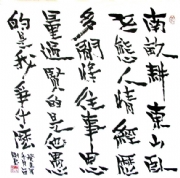 南畝耕東山臥
世態人情經歷
多閒將往事思
量過賢的是他愚
的是我爭什麼